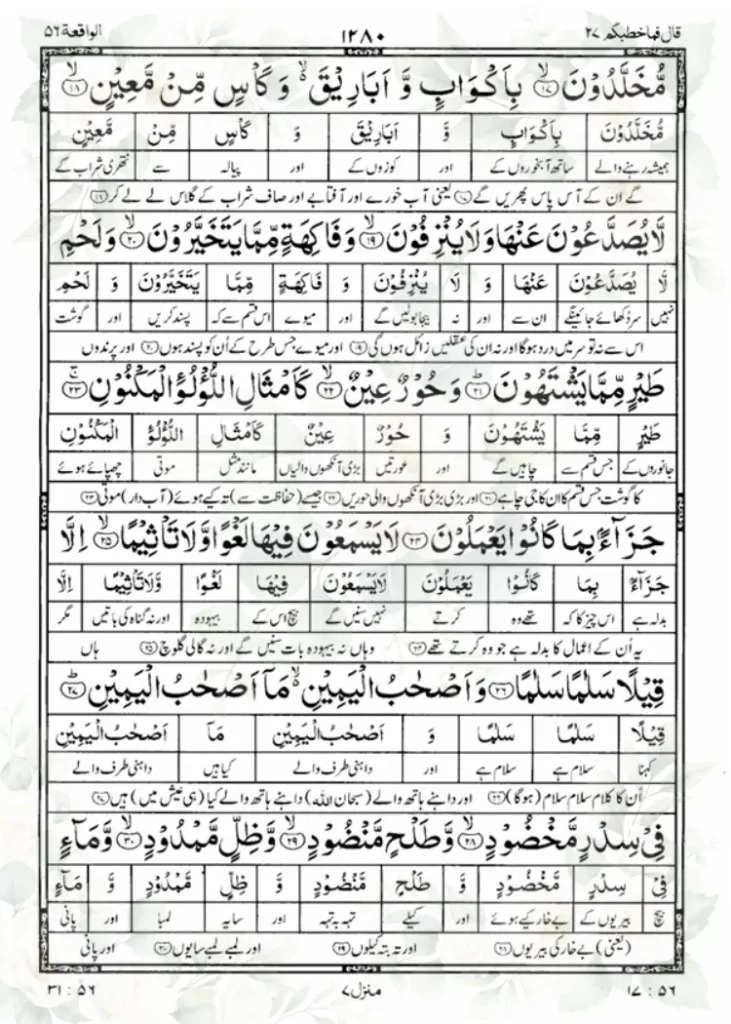 قال فما خطبكم ۲۷ ۱۲۸۰ الواقعة ۵۶
مُّخَلَّدُوْنَ ۙ﴿۱۷﴾ بِاَكْوَابٍ وَّ اَبَارِيْقَ ۙ وَ كَاْسٍ مِّنْ مَّعِيْنٍ ۙ﴿۱۸﴾
مُّخَلَّدُوْنَ بِاَكْوَابٍ وَّ اَبَارِيْقَ وَ كَاْسٍ مِّنْ مَّعِيْنٍ
ہمیشہ رہنے والے ساتھ آبخوروں کے اور کوزوں کے اور پیالہ سے نتھری شراب کے
گے ان کے آس پاس پھریں گے ﴿۱۷﴾ یعنی آب خورے اور آفتابے اور صاف شراب کے گلاس لے لے کر ﴿۱۸﴾
لَّا يُصَدَّعُوْنَ عَنْهَا وَ لَا يُنْزِفُوْنَ ۙ﴿۱۹﴾ وَ فَاكِهَةٍ مِّمَّا يَتَخَيَّرُوْنَ ۙ﴿۲۰﴾ وَ لَحْمِ
لَّا يُصَدَّعُوْنَ عَنْهَا وَ لَا يُنْزِفُوْنَ وَ فَاكِهَةٍ مِّمَّا يَتَخَيَّرُوْنَ وَ لَحْمِ
نہیں سر دکھائے جائینگے ان سے اور نہ بیجا بولیں گے اور میوے اس قسم سے کہ پسند کریں اور گوشت
اس سے نہ تو سر میں درد ہوگا اور نہ ان کی عقلیں زائل ہوں گی ﴿۱۹﴾ اور میوے جس طرح کے اُن کو پسند ہوں ﴿۲۰﴾ اور پرندوں
طَيْرٍ مِّمَّا يَشْتَهُوْنَ ؕ﴿۲۱﴾ وَ حُوْرٌ عِيْنٌ ۙ﴿۲۲﴾ كَاَمْثَالِ اللُّؤْلُؤِ الْمَكْنُوْنِ ۚ﴿۲۳﴾
طَيْرٍ مِّمَّا يَشْتَهُوْنَ وَ حُوْرٌ عِيْنٌ كَاَمْثَالِ اللُّؤْلُؤِ الْمَكْنُوْنِ
جانوروں کے جس قسم سے چاہیں گے اور عورتیں بڑی آنکھوں والیاں مانند مثل موتی چھپائے ہوئے
کا گوشت جس قسم کا ان کا جی چاہے ﴿۲۱﴾ اور بڑی بڑی آنکھوں والی حوریں ﴿۲۲﴾ جیسے (حفاظت سے) تہ کیے ہوئے (آب دار) موتی ﴿۲۳﴾
جَزَآءًۢ بِمَا كَانُوْا يَعْمَلُوْنَ ﴿۲۴﴾ لَا يَسْمَعُوْنَ فِيْهَا لَغْوًا وَّ لَا تَاْثِيْمًا ۙ﴿۲۵﴾ اِلَّا
جَزَآءًۢ بِمَا كَانُوْا يَعْمَلُوْنَ لَا يَسْمَعُوْنَ فِيْهَا لَغْوًا وَّلَا تَاْثِيْمًا اِلَّا
بدلہ ہے اس چیز کا کہ تھے وہ کرتے نہیں سنیں گے بیچ اس کے بیہودہ اور نہ گناہ کی باتیں مگر
یہ اُن کے اعمال کا بدلہ ہے جو وہ کرتے تھے ﴿۲۴﴾ وہاں نہ بیہودہ بات سنیں گے اور نہ گالی گلوچ ﴿۲۵﴾ ہاں
قِيْلًا سَلٰمًا سَلٰمًا ﴿۲۶﴾ وَ اَصْحٰبُ الْيَمِيْنِ ۙ مَاۤ اَصْحٰبُ الْيَمِيْنِ ؕ﴿۲۷﴾
قِيْلًا سَلٰمًا سَلٰمًا وَ اَصْحٰبُ الْيَمِيْنِ مَاۤ اَصْحٰبُ الْيَمِيْنِ
کہنا سلام ہے سلام ہے اور داہنی طرف والے کیا ہیں داہنی طرف والے
اُن کا کلام سلام سلام (ہوگا) ﴿۲۶﴾ اور داہنے ہاتھ والے (سبحان اللہ) داہنے ہاتھ والے کیا (ہی عیش میں) ہیں ﴿۲۷﴾
فِيْ سِدْرٍ مَّخْضُوْدٍ ۙ﴿۲۸﴾ وَّ طَلْحٍ مَّنْضُوْدٍ ۙ﴿۲۹﴾ وَّ ظِلٍّ مَّمْدُوْدٍ ۙ﴿۳۰﴾ وَّ مَآءٍ
فِيْ سِدْرٍ مَّخْضُوْدٍ وَّ طَلْحٍ مَّنْضُوْدٍ وَّ ظِلٍّ مَّمْدُوْدٍ وَّ مَآءٍ
بیچ بیریوں کے بے خار کیے ہوئے اور کیلے تہہ بہ تہہ اور سایہ لمبا اور پانی
(یعنی) بے خار کی بیریوں ﴿۲۸﴾ اور تہ بتہ کیلوں ﴿۲۹﴾ اور لمبے لمبے سایوں ﴿۳۰﴾ اور پانی
۵۶ : ۱۷ منزل ۷ ۵۶ : ۳۱